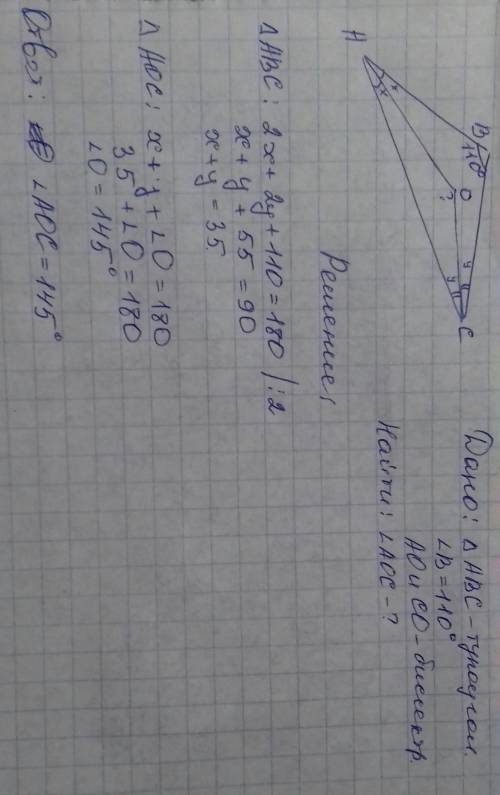 A
B
110°
O
?
C
x
x
y
y
Дано: △ABC - тупоугол.
∠B = 110°
AO и CO - биссектр.
Найти: ∠AOC - ?
Решение:
△ABC: 2x + 2y + 110 = 180 /:2
x + y + 55 = 90
x + y = 35.
△AOC: x + y + ∠O = 180
35° + ∠O = 180
∠O = 145°
Ответ: ∠AOC = 145°